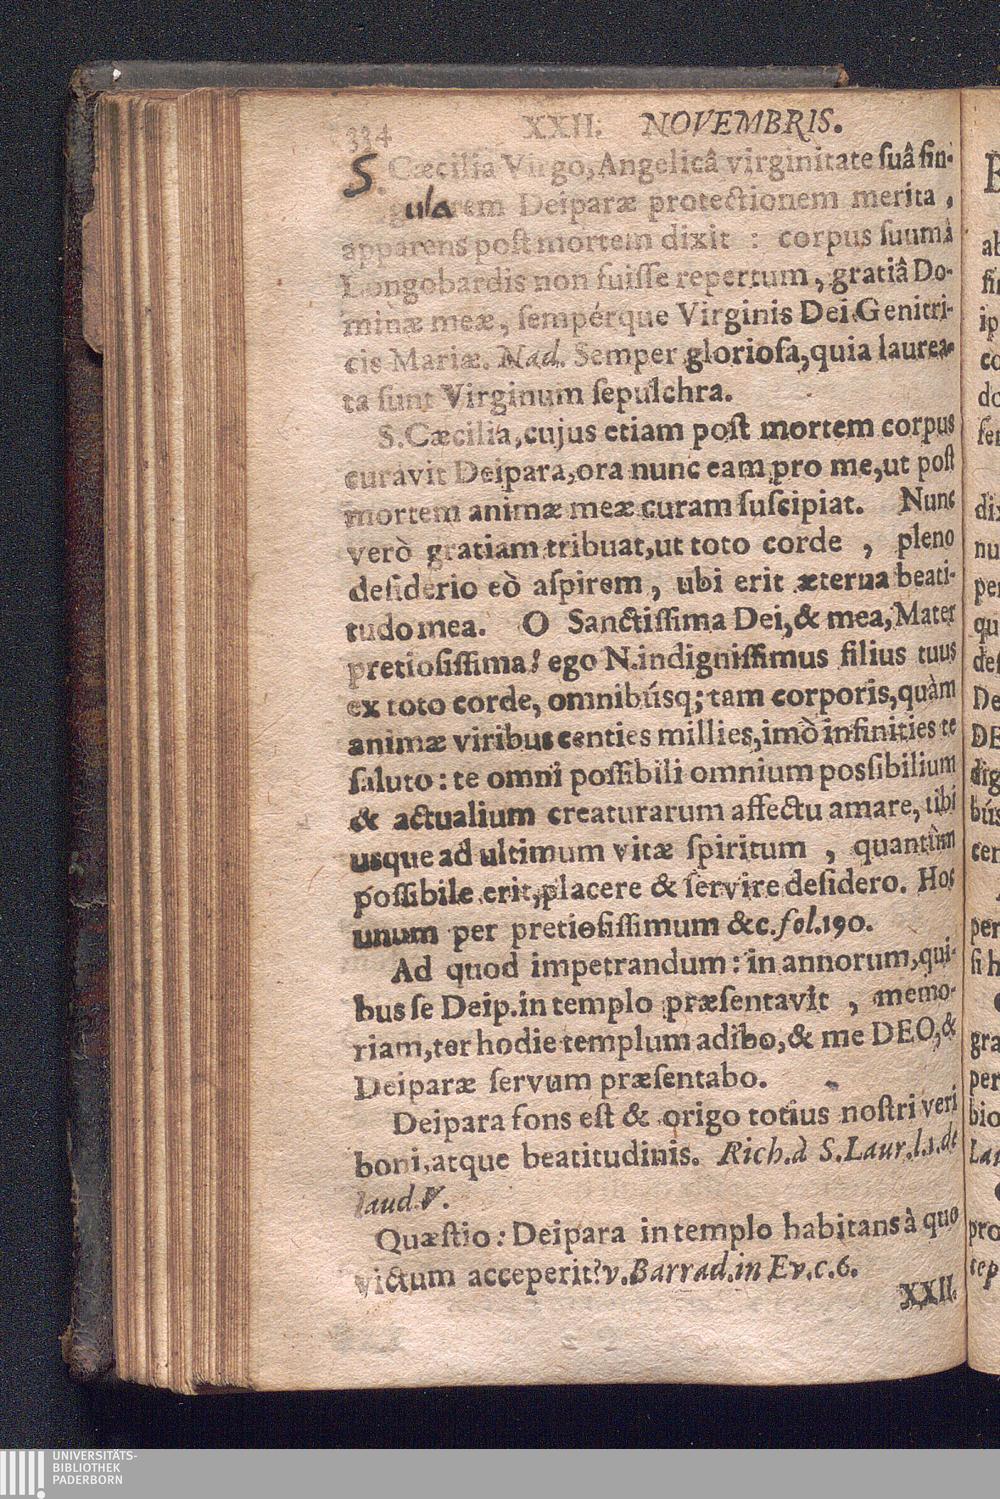 334 XXII. NOVEMBRIS.
S. Cæcilia Virgo, Angelicâ virginitate ſuâ ſin-
gularem Deiparæ protectionem merita,
apparens poſt mortem dixit : corpus ſuum à
Longobardis non fuiſſe repertum, gratiâ Do-
minæ meæ, ſempérque Virginis Dei Genitri-
cis Mariæ. Nad. Semper glorioſa, quia laurea-
ta ſunt Virginum ſepulchra.
S. Cæcilia, cujus etiam poſt mortem corpus
curavit Deipara, ora nunc eam pro me, ut poſt
mortem animæ meæ curam ſuſcipiat. Nunc
verò gratiam tribuat, ut toto corde , pleno
deſiderio eò aſpirem, ubi erit æterna beati-
tudo mea. O Sanctiſſima Dei, & mea, Mater
pretioſiſſima! ego N. indigniſſimus filius tuus
ex toto corde, omnibúsq; tam corporis, quàm
animæ viribus centies millies, imò infinities te
ſaluto: te omni poſſibili omnium poſsibilium
& actualium creaturarum affectu amare, tibi
usque ad ultimum vitæ ſpiritum , quantùm
poſſibile erit, placere & ſervire deſidero. Hoc
unum per pretioſiſſimum &c. fol. 190.
Ad quod impetrandum: in annorum, qui-
bus ſe Deip. in templo præſentavit , memo-
riam, ter hodie templum adibo, & me DEO, &
Deiparæ ſervum præſentabo.
Deipara fons eſt & origo totius noſtri veri
boni, atque beatitudinis. Rich. à S. Laur. l. 1. de
laud. V.
Quæſtio: Deipara in templo habitans à quo
victum acceperit? v. Barrad. in Ev. c. 6.
XXII.
UNIVERSITÄTS-
BIBLIOTHEK
PADERBORN